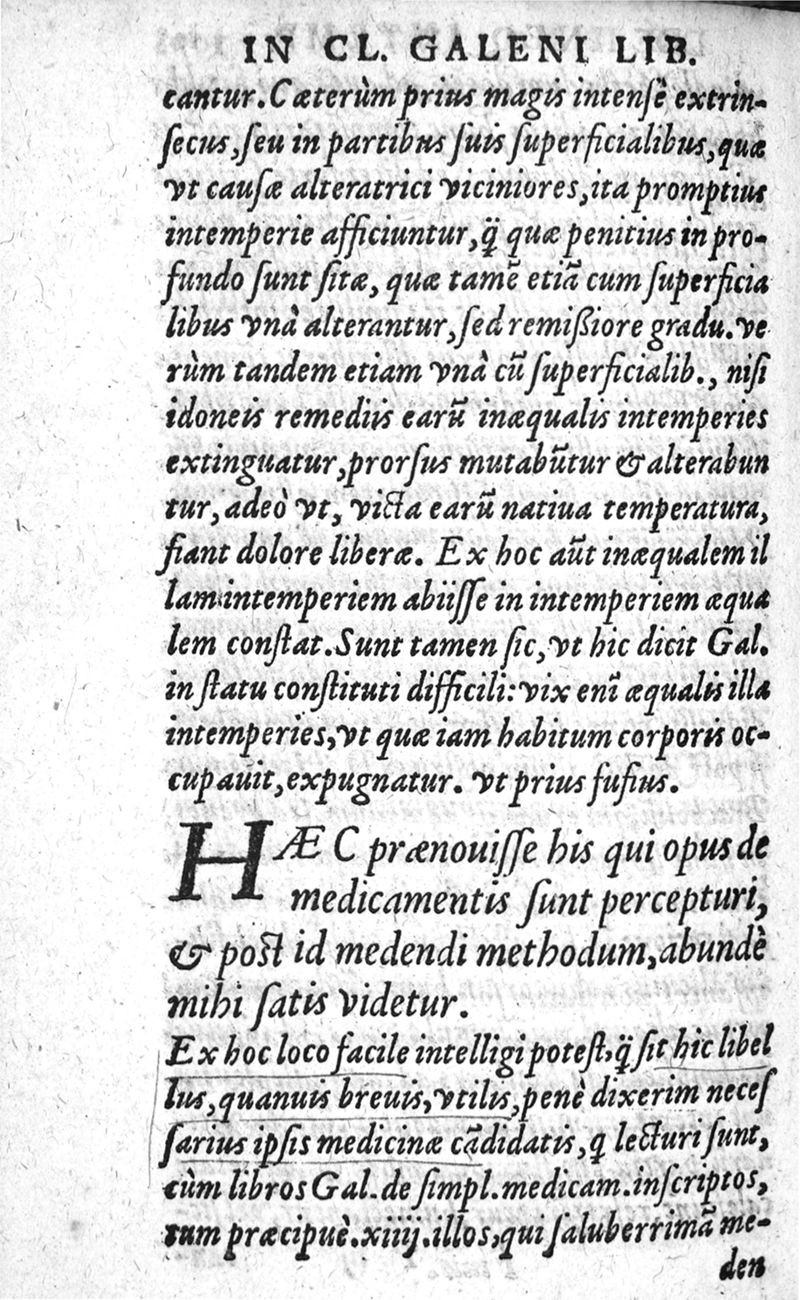 IN CL. GALENI LIB.
cantur. Cæterùm prius magis intensè extrin-
secus, seu in partibus suis superficialibus, quæ
vt causæ alteratrici viciniores, ita promptius
intemperie afficiuntur, q̃ quæ penitius in pro-
fundo sunt sitæ, quæ tamẽ etiã cum superficia
libus vnà alterantur, sed remißiore gradu. ve
rùm tandem etiam vnà cũ superficialib., nisi
idoneis remediis earũ inæqualis intemperies
extinguatur, prorsus mutabũtur & alterabun
tur, adeò vt, victa earũ natiua temperatura,
fiant dolore liberæ. Ex hoc aũt inæqualem il
lam intemperiem abiisse in intemperiem æqua
lem constat. Sunt tamen sic, vt hic dicit Gal.
in statu constituti difficili: vix enĩ æqualis illa
intemperies, vt quæ iam habitum corporis oc-
cupauit, expugnatur. vt prius fusius.
HÆC prænouisse his qui opus de
medicamentis sunt percepturi,
& post id medendi methodum, abundè
mihi satis videtur.
Ex hoc loco facile intelligi potest, q̃ sit hic libel
lus, quanuis breuis, vtilis, penè dixerim neces
sarius ipsis medicinæ cãdidatis, q lecturi sunt,
cùm libros Gal. de simpl. medicam. inscriptos,
tum præcipuè .xiiij. illos, qui saluberrimã me-
den